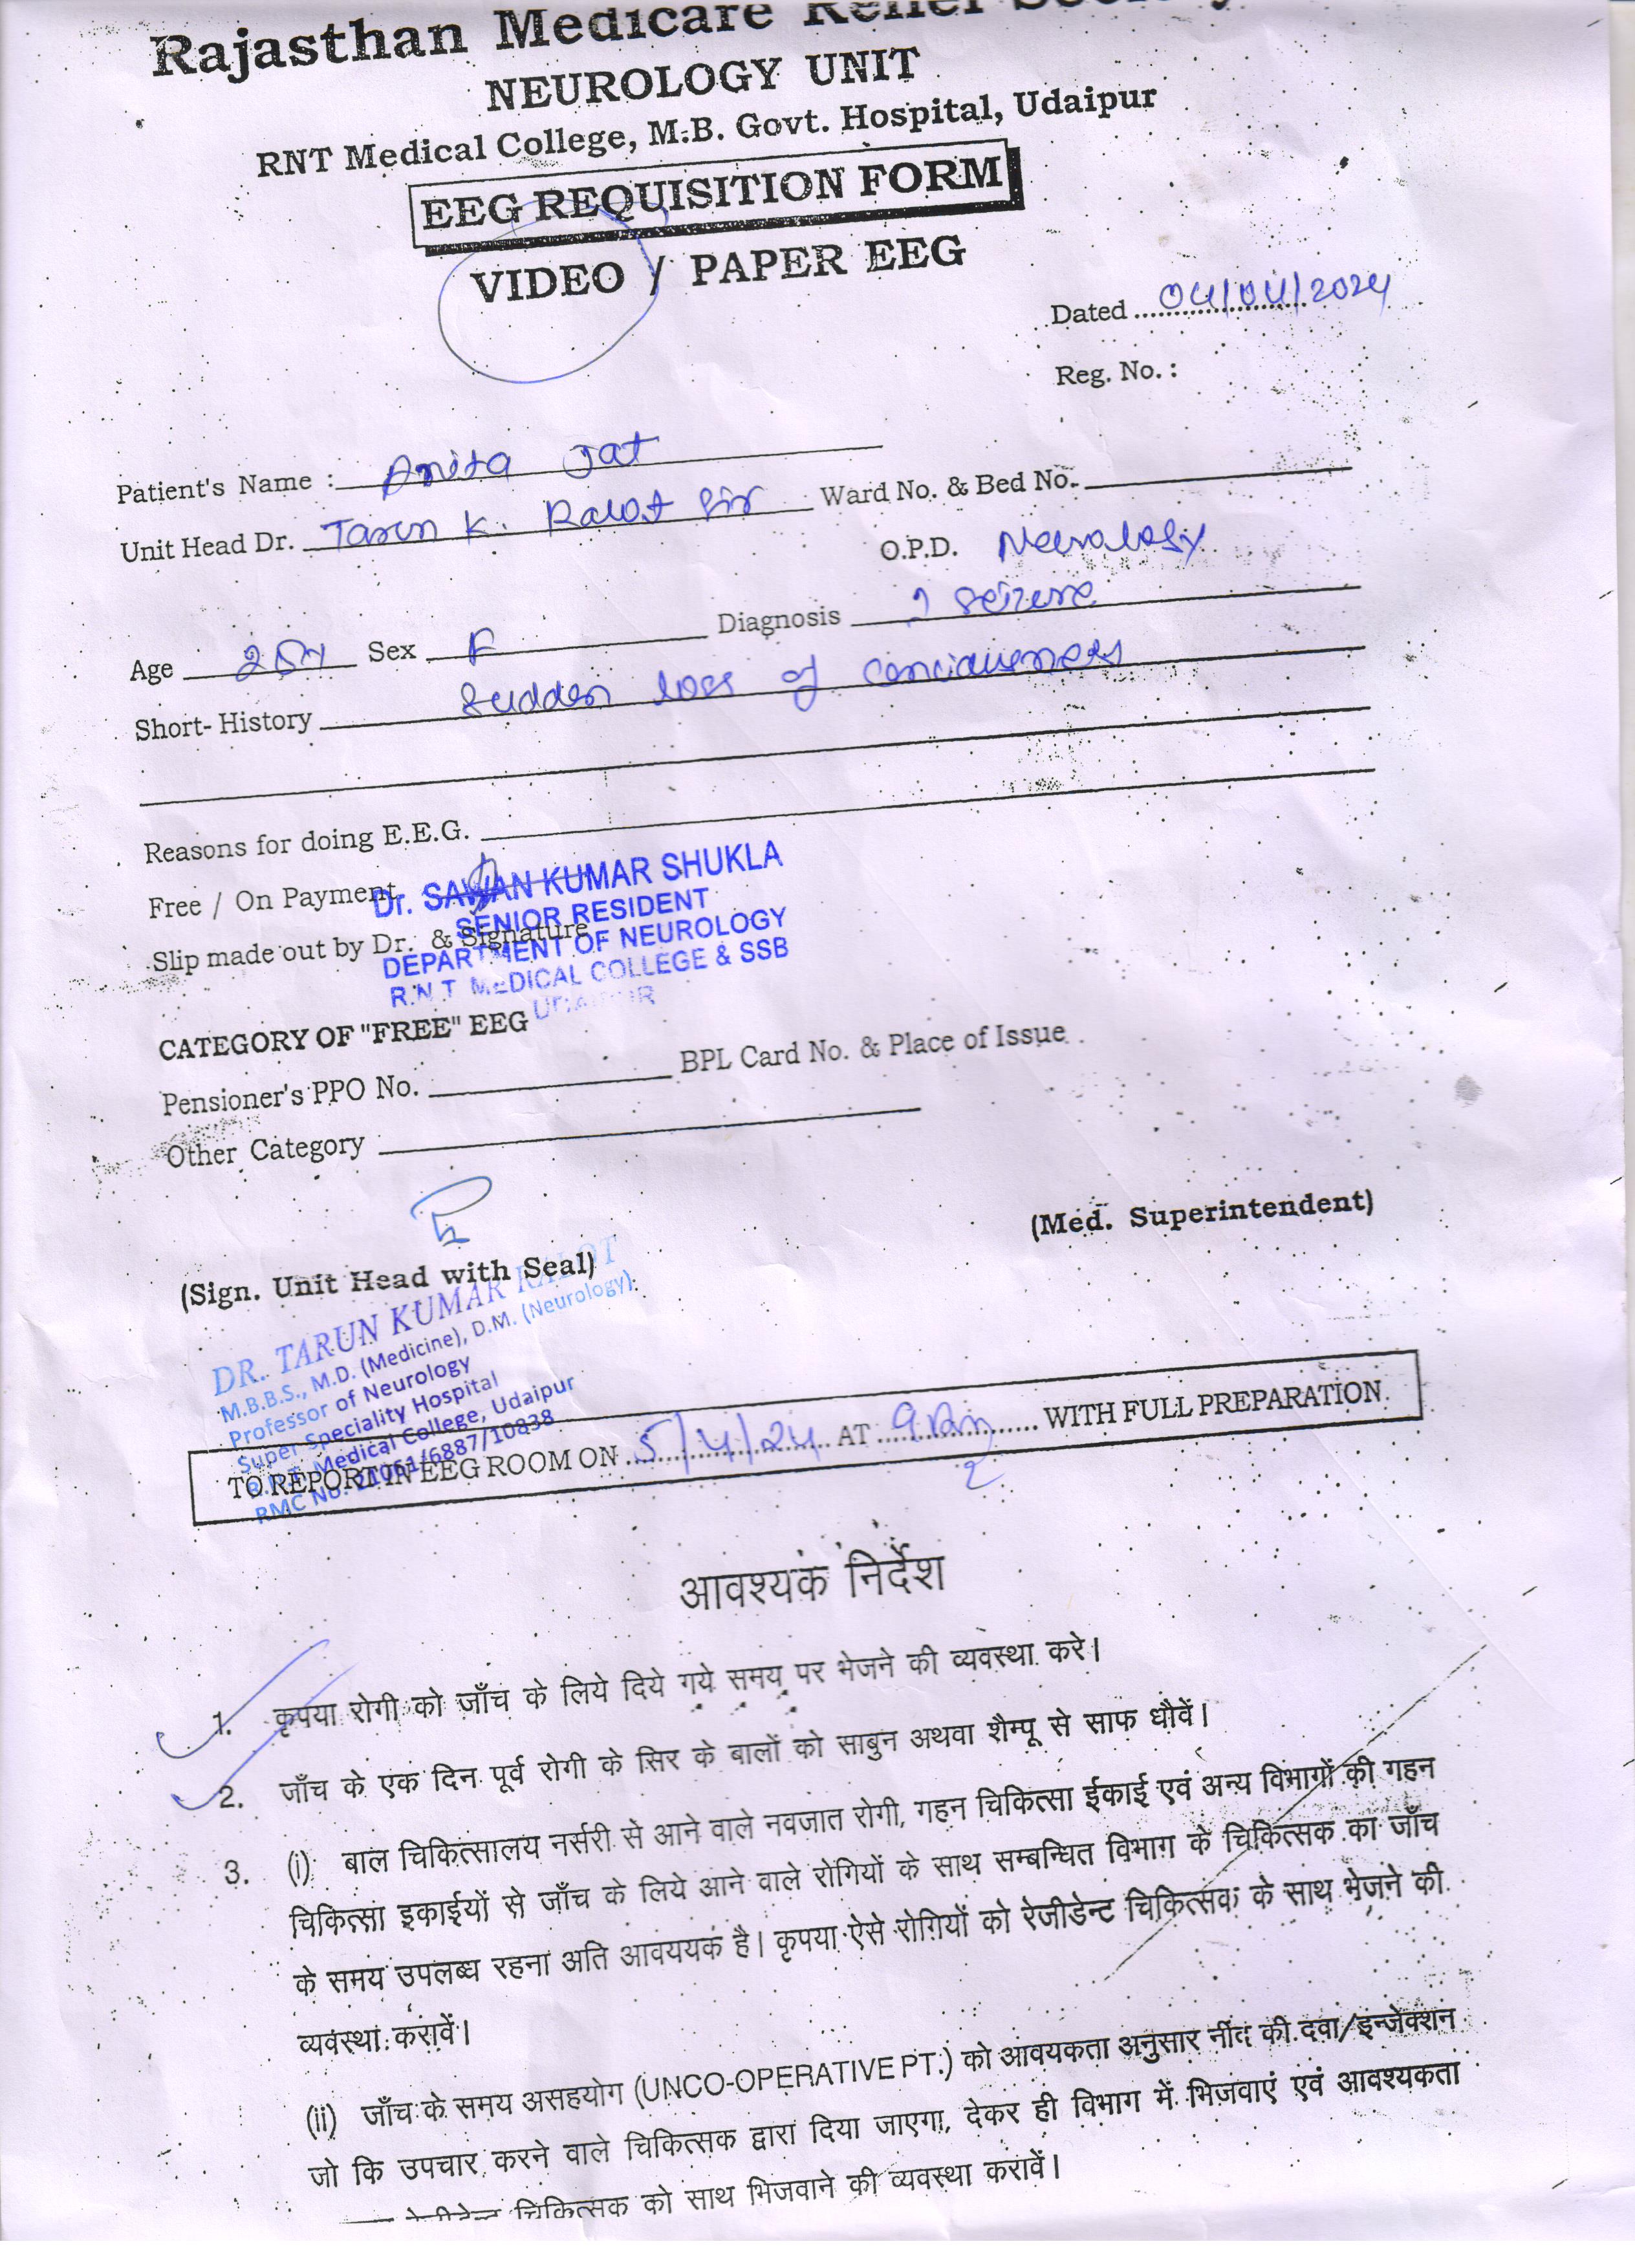 Rajasthan Medicare Relief Society
NEUROLOGY UNIT
RNT Medical College, M.B. Govt. Hospital, Udaipur
EEG REQUISITION FORM
VIDEO / PAPER EEG
Dated 04/04/2024
Reg. No. :
Patient's Name : Anita Jat
Unit Head Dr. Tarun K. Ralot Sir Ward No. & Bed No.
O.P.D. Neurology
Age 25y Sex F Diagnosis ? Seizure
Short- History Sudden loss of conciousness
Reasons for doing E.E.G.
Free / On Payment
Dr. SAWAN KUMAR SHUKLA
SENIOR RESIDENT
Slip made out by Dr. & Signature
DEPARTMENT OF NEUROLOGY
R.N.T MEDICAL COLLEGE & SSB
UDAIPUR
CATEGORY OF "FREE" EEG
Pensioner's PPO No. BPL Card No. & Place of Issue
Other Category
(Med. Superintendent)
(Sign. Unit Head with Seal)
DR. TARUN KUMAR RALOT
M.B.B.S., M.D. (Medicine), D.M. (Neurology)
Professor of Neurology
Super Speciality Hospital
Medical College, Udaipur
RMC No. /6887/10838
TO REPORT IN EEG ROOM ON 5/4/24 AT 9 WITH FULL PREPARATION
आवश्यक निर्देश
1. कृपया रोगी को जाँच के लिये दिये गये समय पर भेजने की व्यवस्था करे।
2. जाँच के एक दिन पूर्व रोगी के सिर के बालों को साबुन अथवा शैम्पू से साफ धौवें।
3. (i) बाल चिकित्सालय नर्सरी से आने वाले नवजात रोगी, गहन चिकित्सा ईकाई एवं अन्य विभागों की गहन
चिकित्सा इकाईयों से जाँच के लिये आने वाले रोगियों के साथ सम्बन्धित विभाग के चिकित्सक का जाँच
के समय उपलब्ध रहना अति आवययक है। कृपया ऐसे रोगियों को रेजीडेन्ट चिकित्सक के साथ भेजने की
व्यवस्था करावें।
(ii) जाँच के समय असहयोग (UNCO-OPERATIVE PT.) को आवयकता अनुसार नींद की दवा/इन्जेक्शन
जो कि उपचार करने वाले चिकित्सक द्वारा दिया जाएगा, देकर ही विभाग में भिजवाएं एवं आवश्यकता
रेजीडेन्ट चिकित्सक को साथ भिजवाने की व्यवस्था करावें।